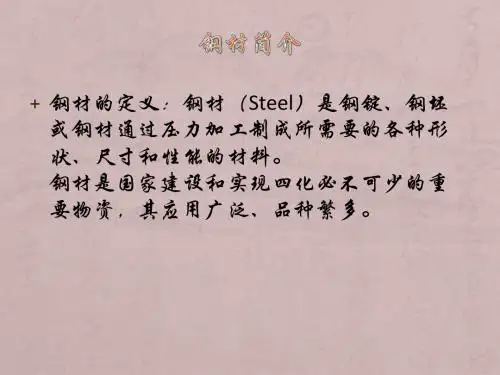 钢材简介
+ 钢材的定义：钢材（Steel）是钢锭、钢坯
或钢材通过压力加工制成所需要的各种形
状、尺寸和性能的材料。
钢材是国家建设和实现四化必不可少的重
要物资，其应用广泛、品种繁多。